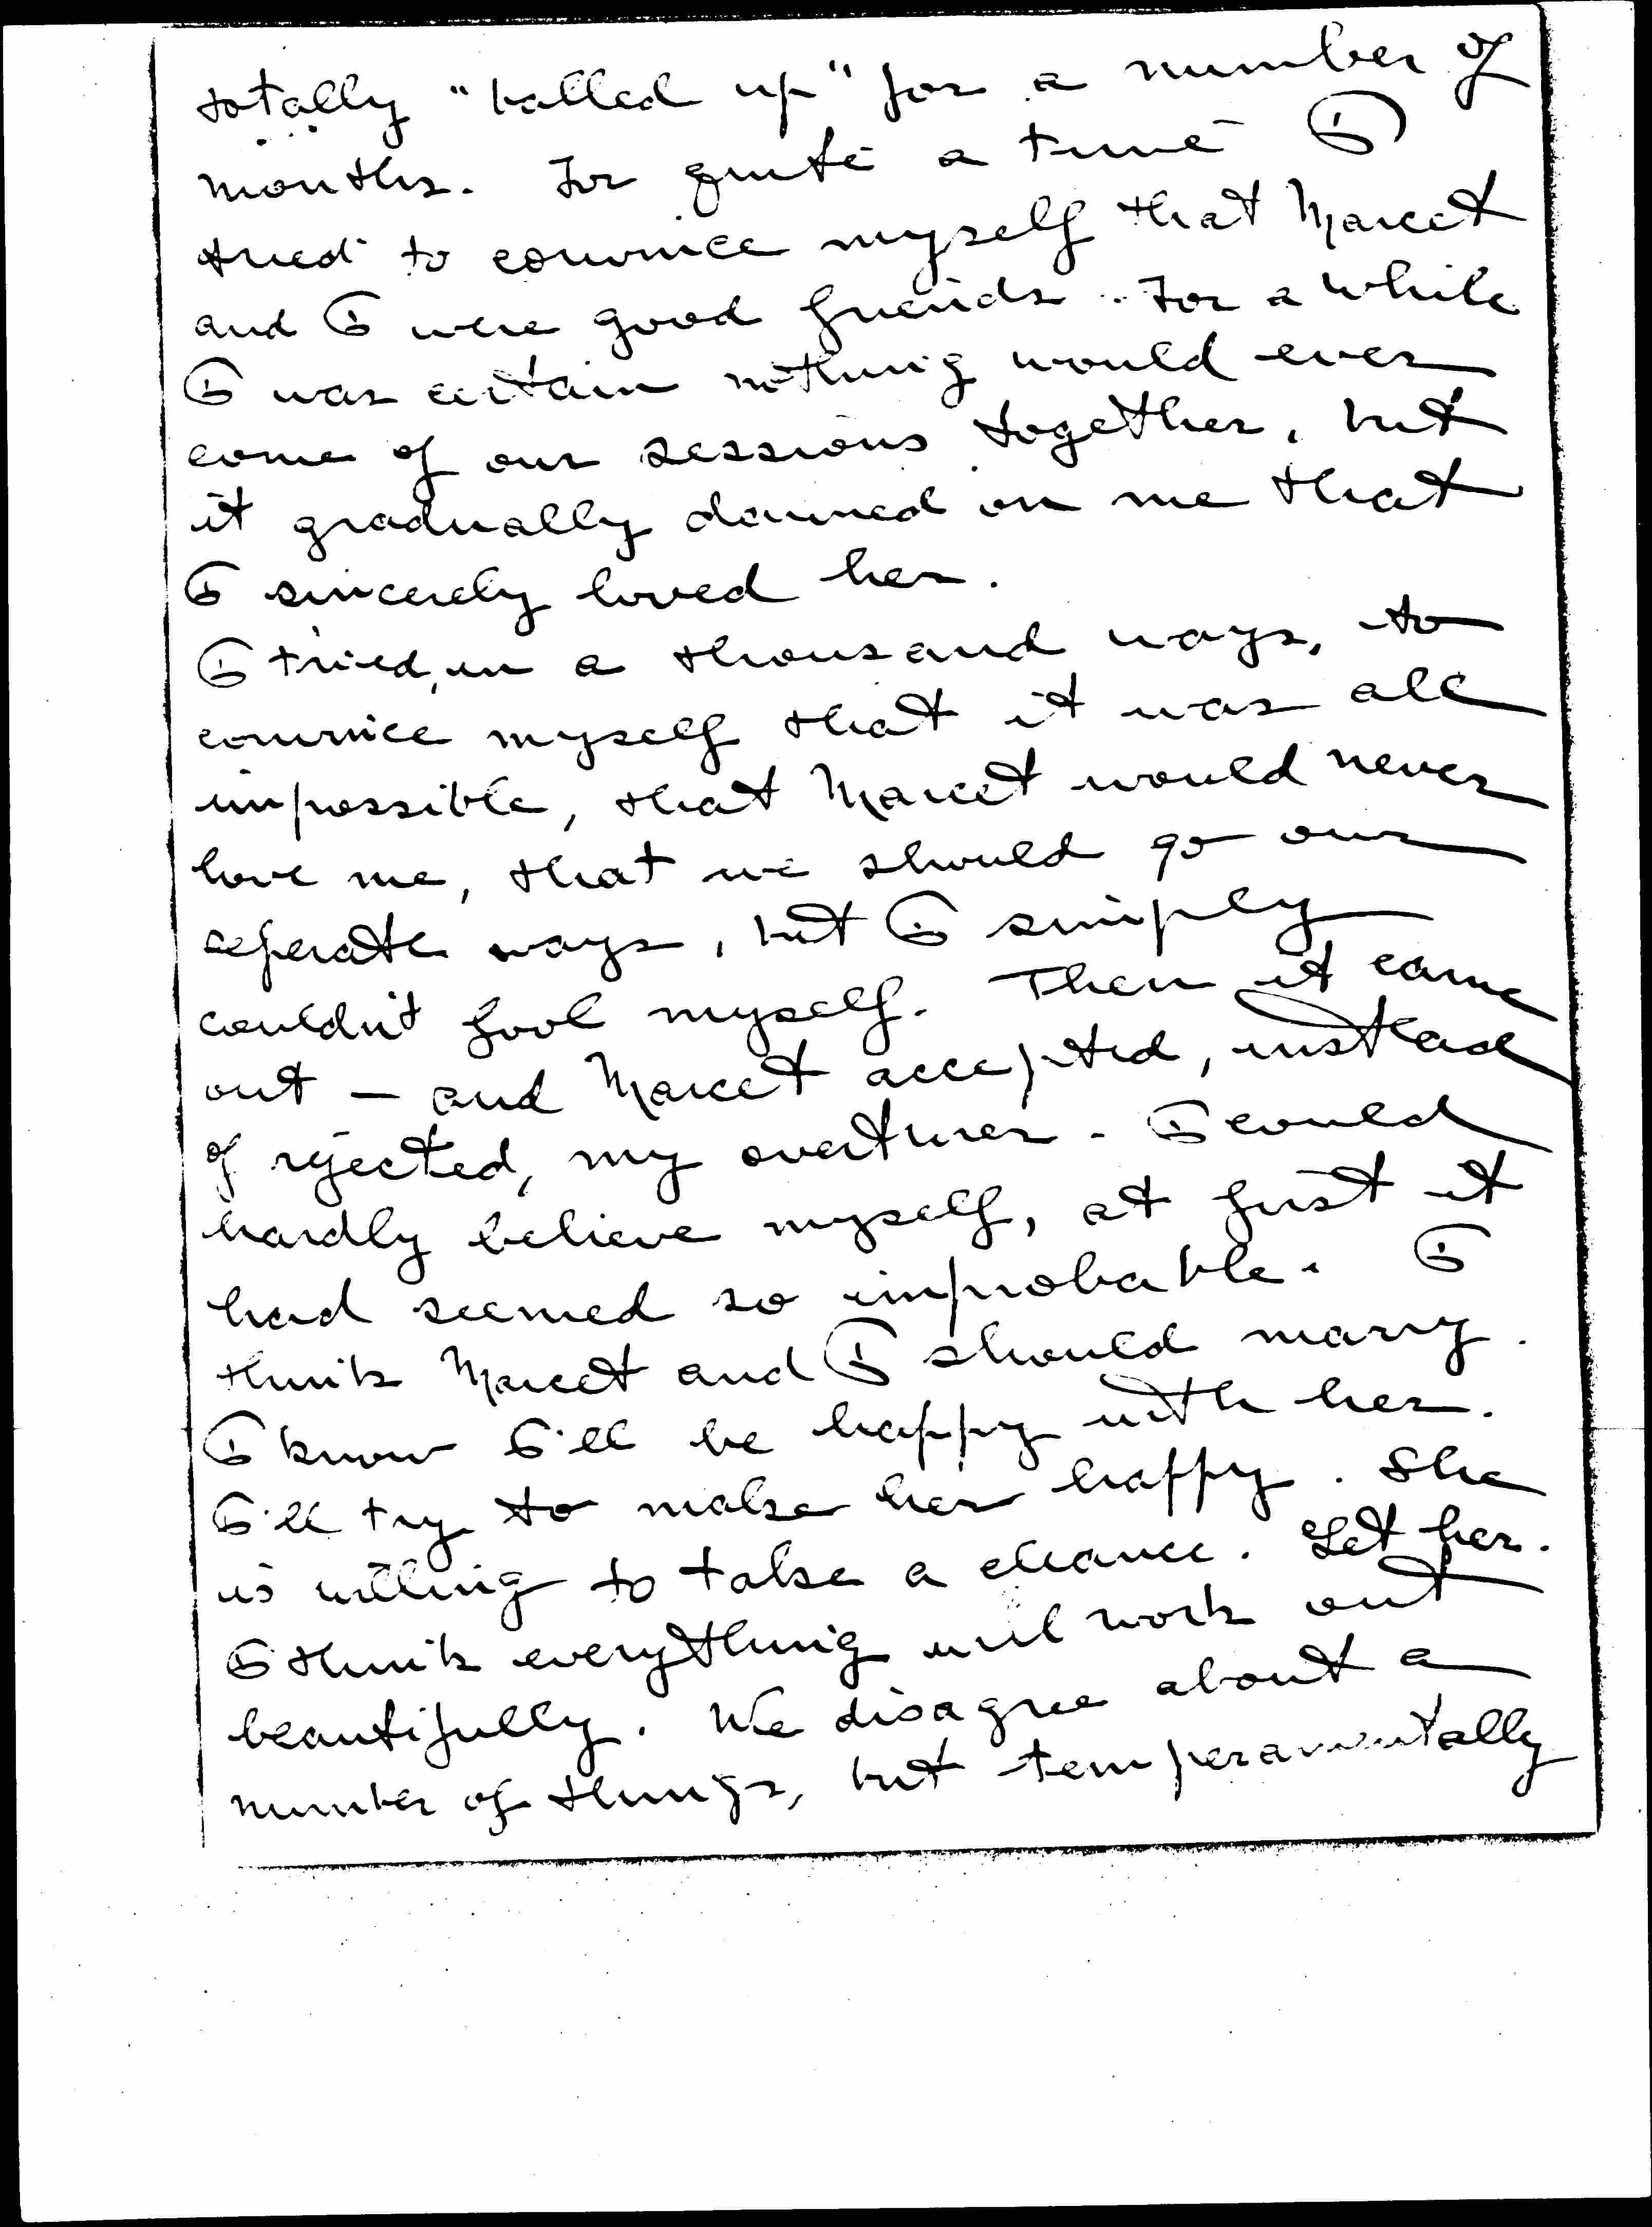 totally "balled up" for a number of
months. For quite a time I
tried to convince myself that Marcet
and I were good friends. For a while
I was certain nothing would ever
come of our sessions together, but
it gradually dawned on me that
I sincerely loved her.
I tried, in a thousand ways, to
convince myself that it was all
impossible, that Marcet would never
love me, that we should go our
seperate ways, but I simply
couldn't fool myself. Then it came
out — and Marcet accepted, instead
of rejected, my overtures. I could
hardly believe myself, at first it
had seemed so improbable. I
think Marcet and I should marry.
I know I'll be happy with her.
I'll try to make her happy. She
is willing to take a chance. Let her.
I think everything will work out
beautifully. We disagree about a
number of things, but temperamentally